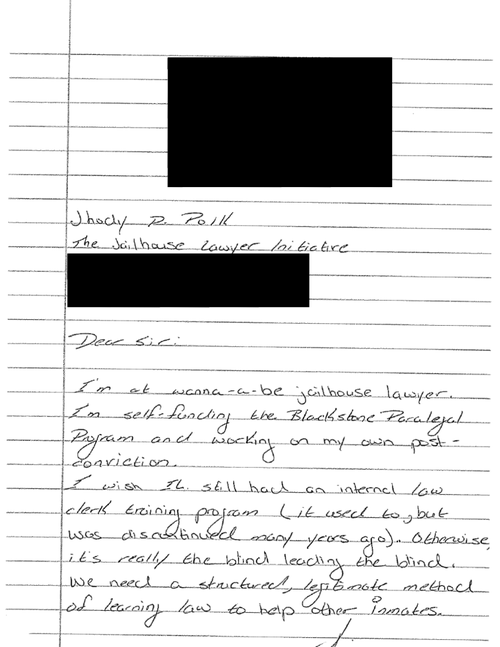 Jhody D. Polk
The Jailhouse Lawyer Initiative
Dear Sir:
I'm at wanna-a-be jailhouse lawyer.
I'm self-funding the Blackstone Paralegal
Program and working on my own post-
conviction.
I wish IL. still had an internal law
clerk training program (it used to, but
was discontinued many years ago). Otherwise,
it's really the blind leading the blind.
We need a structured, legitimate method
of learning law to help other inmates.